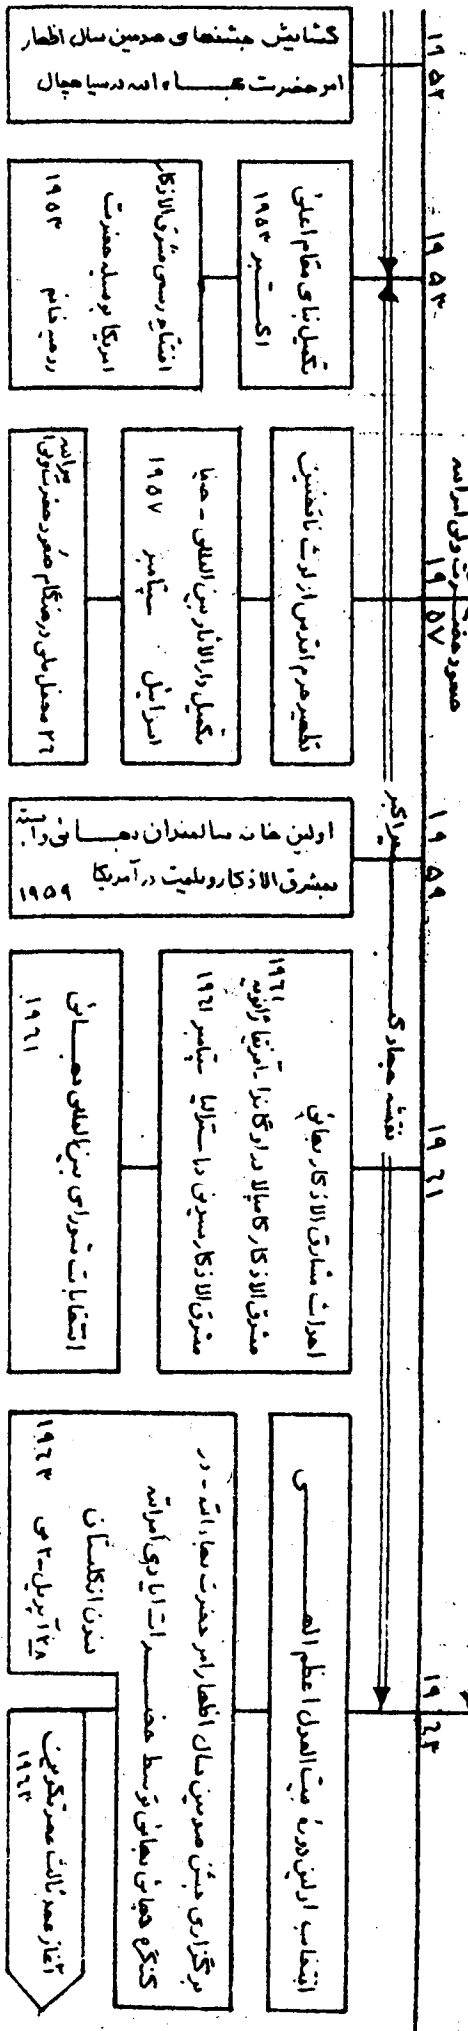 ۱۹۵۲
گشایش جشنهای صدمین سال اظهار
امر حضرت بهاء الله در سیاهچال
۱۹۵۳
تکمیل بنای مقام اعلی
اکتبر ۱۹۵۳
افتتاح رسمی مشرق الاذکار
امریکا بوسیله حضرت
روحیه خانم ۱۹۵۳
صعود حضرت ولی امرالله
۱۹۵۷
تطهیر حرم اقدس از لوث ناقضین
تکمیل دارالآثار بین المللی - حیفا
اسرائیل سپتامبر ۱۹۵۷
۲۶ محفل ملی در هنگام صعود حضرت ولی
امرالله
۱۹۵۹
اولین خانه سالمندان بهائی وابسته
بمشرق الاذکار ویلمیت در آمریکا ۱۹۵۹
نقشه جهاد کبیر اکبر
۱۹۶۱
احداث مشارق الاذکار بهائی
مشرق الاذکار کامپالا در اوگاندا - آفریقا ژانویه ۱۹۶۱
مشرق الاذکار سیدنی در استرالیا سپتامبر ۱۹۶۱
انتخابات شورای بین المللی بهائی
۱۹۶۱
۱۹۶۳
انتخاب اولین دوره بیت العدل اعظم الهی
برگزاری جشن صدمین سال اظهار امر حضرت بهاءالله - در
کنگره جهانی بهائی توسط حضرات ایادی امرالله
لندن انگلستان
۲۸ آپریل - ۲ می ۱۹۶۳
آغاز عهد ثالث عصر تکوین
۱۹۶۳